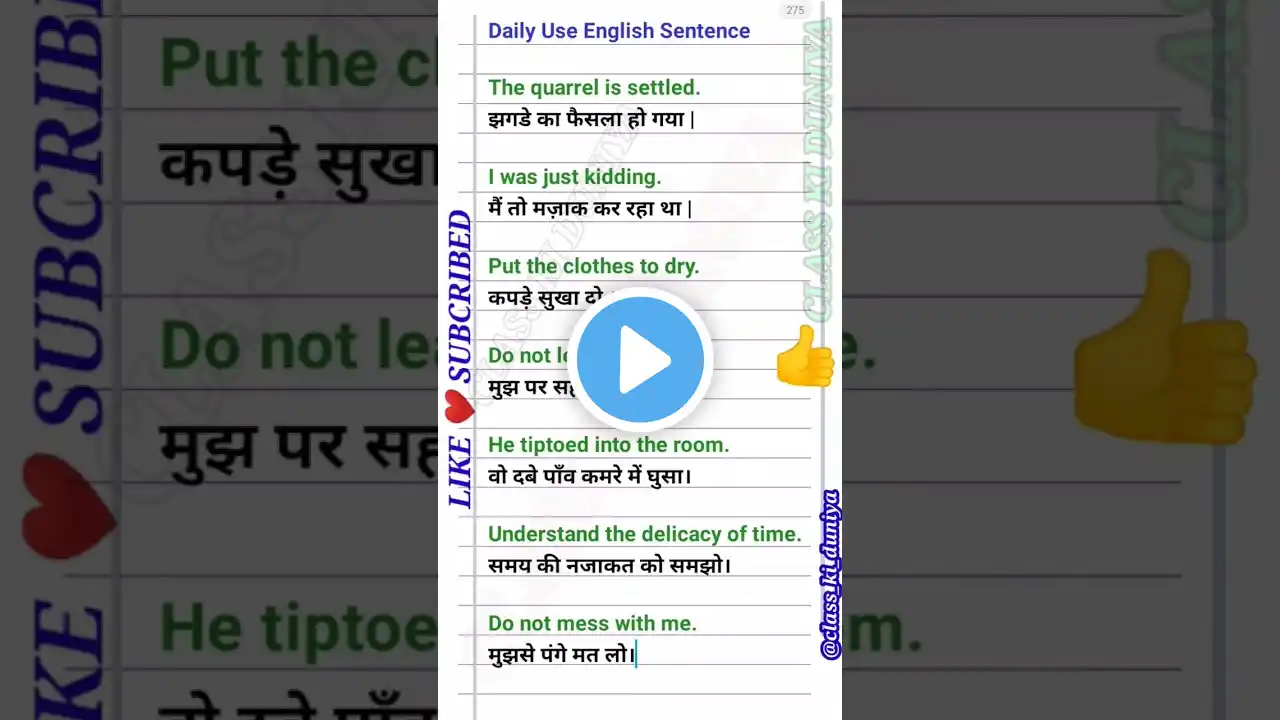 275
Daily Use English Sentence
The quarrel is settled.
झगडे का फैसला हो गया |
I was just kidding.
मैं तो मज़ाक कर रहा था |
Put the clothes to dry.
कपड़े सुखा दो
Do not
मुझ पर
He tiptoed into the room.
वो दबे पाँव कमरे में घुसा।
Understand the delicacy of time.
समय की नजाकत को समझो।
Do not mess with me.
मुझसे पंगे मत लो।
LIKE SUBCRIBED
CLASS KI DUNIYA
@class_ki_duniya
CLASS KI DUNIYA
SUBCRIBED
Put the
कपड़े सुखा
Do not
मुझ पर
He